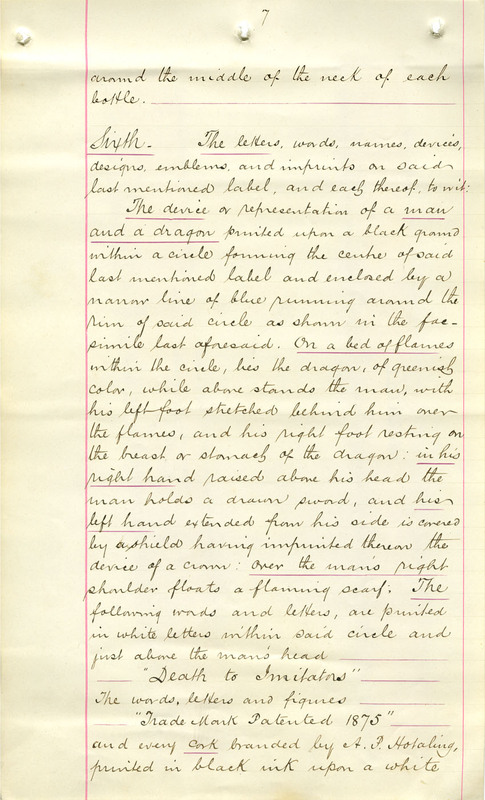 7
around the middle of the neck of each
bottle.
Sixth. The letters, words, names, devices,
designs, emblems, and imprints on said
last mentioned label, and each thereof, to wit:
The device or representation of a man
and a dragon printed upon a black ground
within a circle forming the centre of said
last mentioned label and enclosed by a
narrow line of blue running around the
rim of said circle as shown in the fac-
simile last aforesaid. On a bed of flames
within the circle, lies the dragon, of greenish
color, while above stands the man, with
his left foot stretched behind him over
the flames, and his right foot resting on
the breast or stomach of the dragon: in his
right hand raised above his head the
man holds a drawn sword, and his
left hand extended from his side is covered
by a shield having imprinted thereon the
device of a crown: Over the mans right
shoulder floats a flaming scarf. The
following words and letters, are printed
in white letters within said circle and
just above the man's head
"Death to Imitators"
The words, letters and figures
"Trade Mark Patented 1875"
and every cork branded by A. P. Hotaling,
printed in black ink upon a white